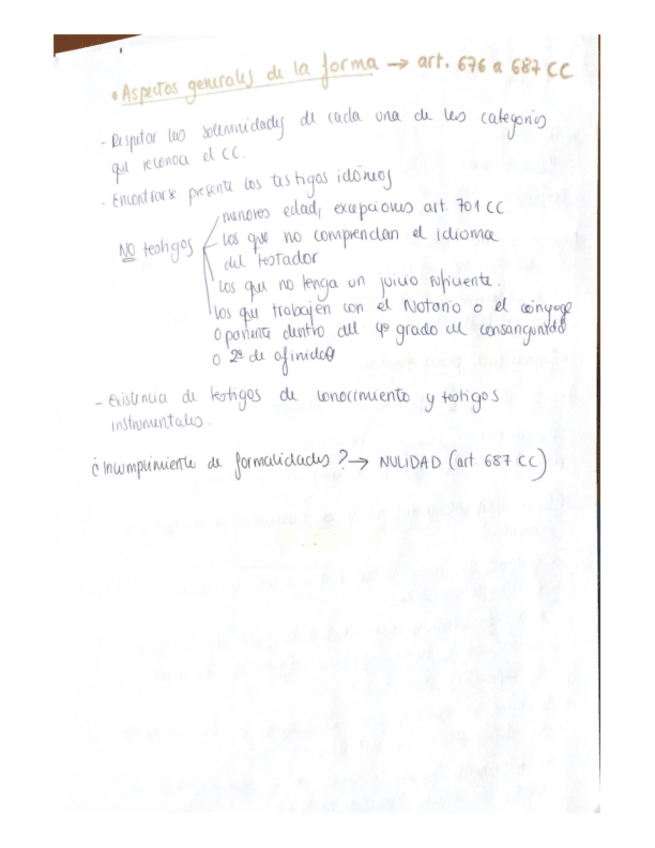 • Aspectos generales de la forma → art. 676 a 687 CC
- Respetar las solemnidades de cada una de las categorias
que reconoce el CC.
- Encontrarse presente los testigos idóneos
NO testigos
menores edad, excepciones art. 701 CC
los que no comprendan el idioma
del testador
los que no tenga un juicio suficiente.
los que trabajen con el Notario o el cónyuge
o pariente dentro del 4º grado de consanguinidad
o 2º de afinidad
- Existencia de testigos de conocimiento y testigos
instrumentales.
¿Incumplimiento de formalidades? → NULIDAD (art. 687 CC)